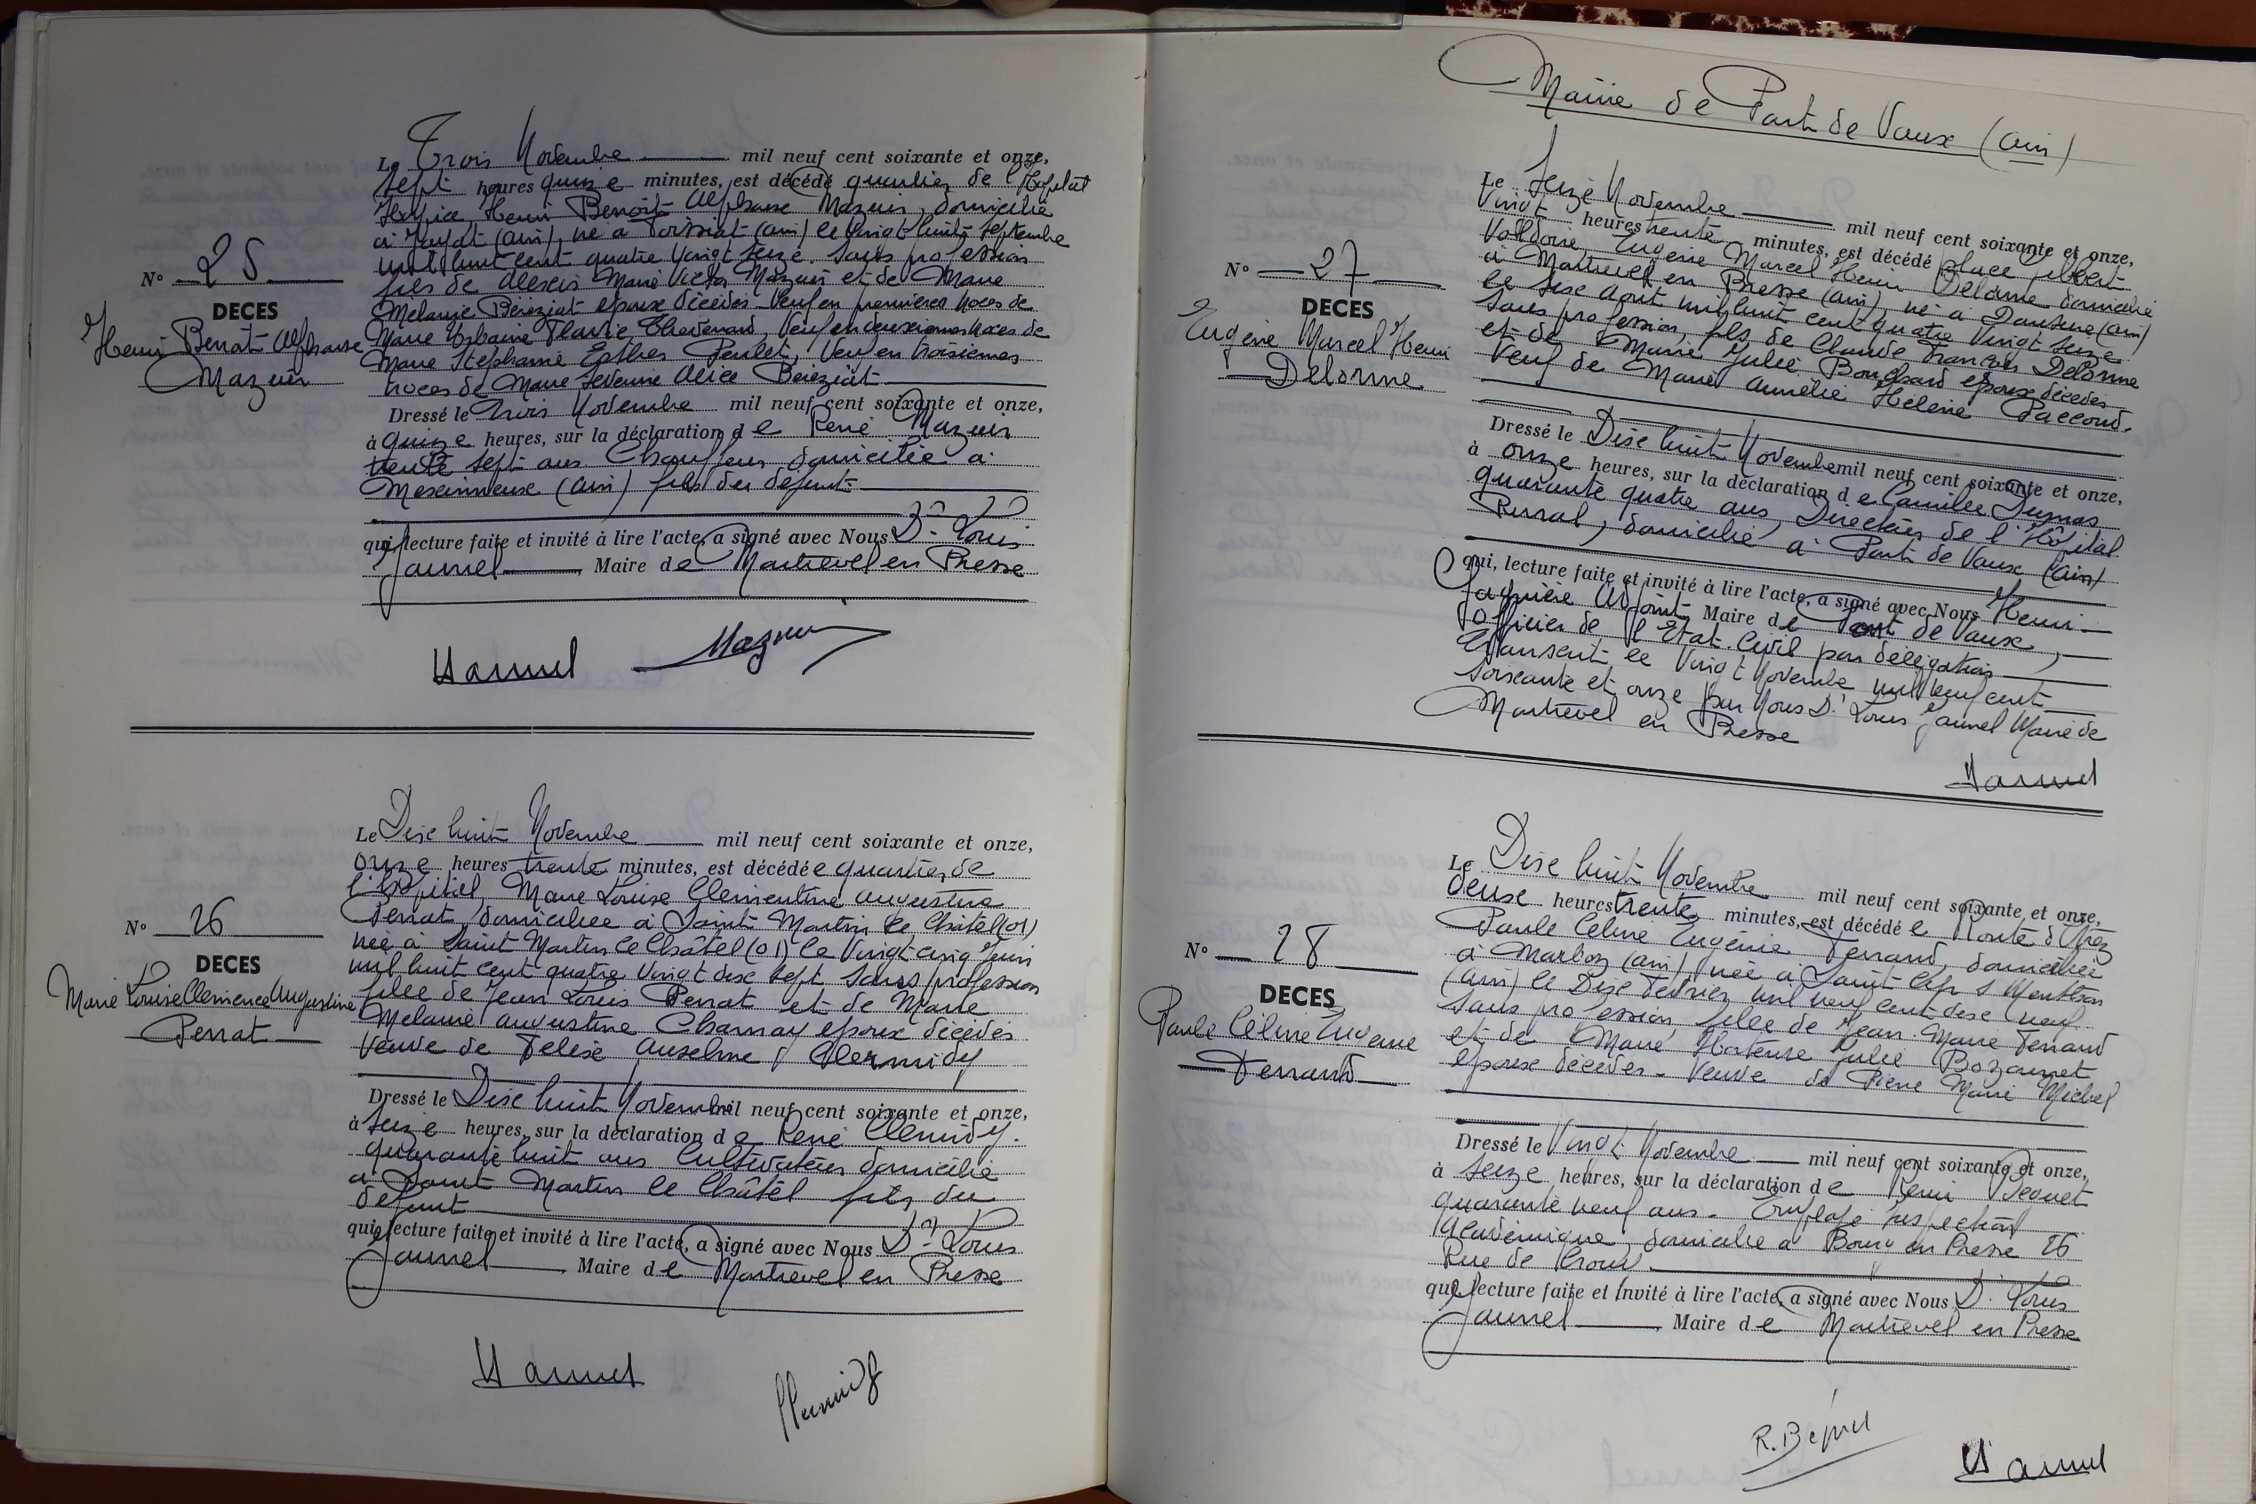 Le Trois Novembre mil neuf cent soixante et onze,
sept heures quinze minutes, est décédé quartier de l'Hôpital
Hospice, Henri Benoit Alphonse Mazuir, domicilié
à Jayat (Ain), né à Foissiat (Ain) le vingt huit septembre
mil huit cent quatre vingt seize. sans profession
fils de Alexis Marie Victor Mazuir et de Marie
Mélanie Béréziat époux décédés. Veuf en premières noces de
Marie Urbaine Flavie Thevenard, Veuf en deuxièmes noces de
Marie Stéphanie Esther Penlet, Veuf en troisièmes
noces de Marie Séverine Alice Béréziat
N° 25
DECES
Henri Benoit Alphonse
Mazuir
Dressé le trois Novembre mil neuf cent soixante et onze,
à quinze heures, sur la déclaration de René Mazuir
trente sept ans Chauffeur domicilié à
Meximieux (Ain) fils du défunt
qui, lecture faite et invité à lire l'acte, a signé avec Nous Dr. Louis
Jaunel Maire de Montrevel en Bresse
Le Dix huit Novembre mil neuf cent soixante et onze,
onze heures trente minutes, est décédée quartier de
l'hôpital, Marie Louise Clémentine Augustine
Perrat, domiciliée à Saint Martin le Châtel (01)
née à Saint Martin le Châtel (01) le vingt cinq Juin
mil huit cent quatre vingt dix sept sans profession
fille de Jean Louis Perrat et de Marie
Mélanie Augustine Charnay époux décédés
Veuve de Félix Anselme Clermidy
N° 26
DECES
Marie Louise Clémence Augustine
Perrat
Dressé le Dix huit Novembre mil neuf cent soixante et onze,
à seize heures, sur la déclaration de René Clermidy.
quarante huit ans Cultivateur domicilié
à Saint Martin le Châtel fils du
défunt
qui, lecture faite et invité à lire l'acte, a signé avec Nous Dr. Louis
Jaunel Maire de Montrevel en Bresse
Mairie de Pont de Vaux (Ain)
Le Seize Novembre mil neuf cent soixante et onze,
Vingt heures trente minutes, est décédé place
Eugène Marcel Henri Delorme domicilié
à Montrevel en Bresse (Ain), né à (Ain)
le six Août mil huit cent quatre vingt seize
sans profession, fils de Claude François Delorme
et de Marie Julie Bouchard époux décédés
Veuf de Marie Aurélie Hélène Paccoud.
N° 27
DECES
Eugène Marcel Henri
Delorme
Dressé le Dix huit Novembre mil neuf cent soixante et onze,
à onze heures, sur la déclaration de Camille Dumas
quarante quatre ans, Directeur de l'Hôpital
Rural, domicilié à Pont de Vaux (Ain)
qui, lecture faite et invité à lire l'acte, a signé avec Nous Henri
Adjoint Maire de Pont de Vaux,
Officier de l'Etat-Civil par délégation
Transcrit le Vingt Novembre mil neuf cent
soixante et onze par Nous Dr. Louis Jaunel Maire de
Montrevel en Bresse
Le Dix huit Novembre mil neuf cent soixante et onze,
deux heures trente minutes, est décédée Route d'Etrez
Paule Céline Eugénie Ferrand, domiciliée
à Marboz (Ain) née à Saint Cyr s Menthon
(Ain) le Dix Février mil neuf cent dix neuf
sans profession, fille de Jean Marie Ferrand
et de Marie Hortense Julie Bozonnet
époux décédés. Veuve de Pierre Marie Michel
N° 28
DECES
Paule Céline Eugénie
Ferrand
Dressé le Vingt Novembre mil neuf cent soixante et onze,
à seize heures, sur la déclaration de Rémi
quarante neuf ans. Employé Inspection
Académique domicilié à Bourg en Bresse 26
Rue de
qui, lecture faite et invité à lire l'acte, a signé avec Nous Dr. Louis
Jaunel Maire de Montrevel en Bresse